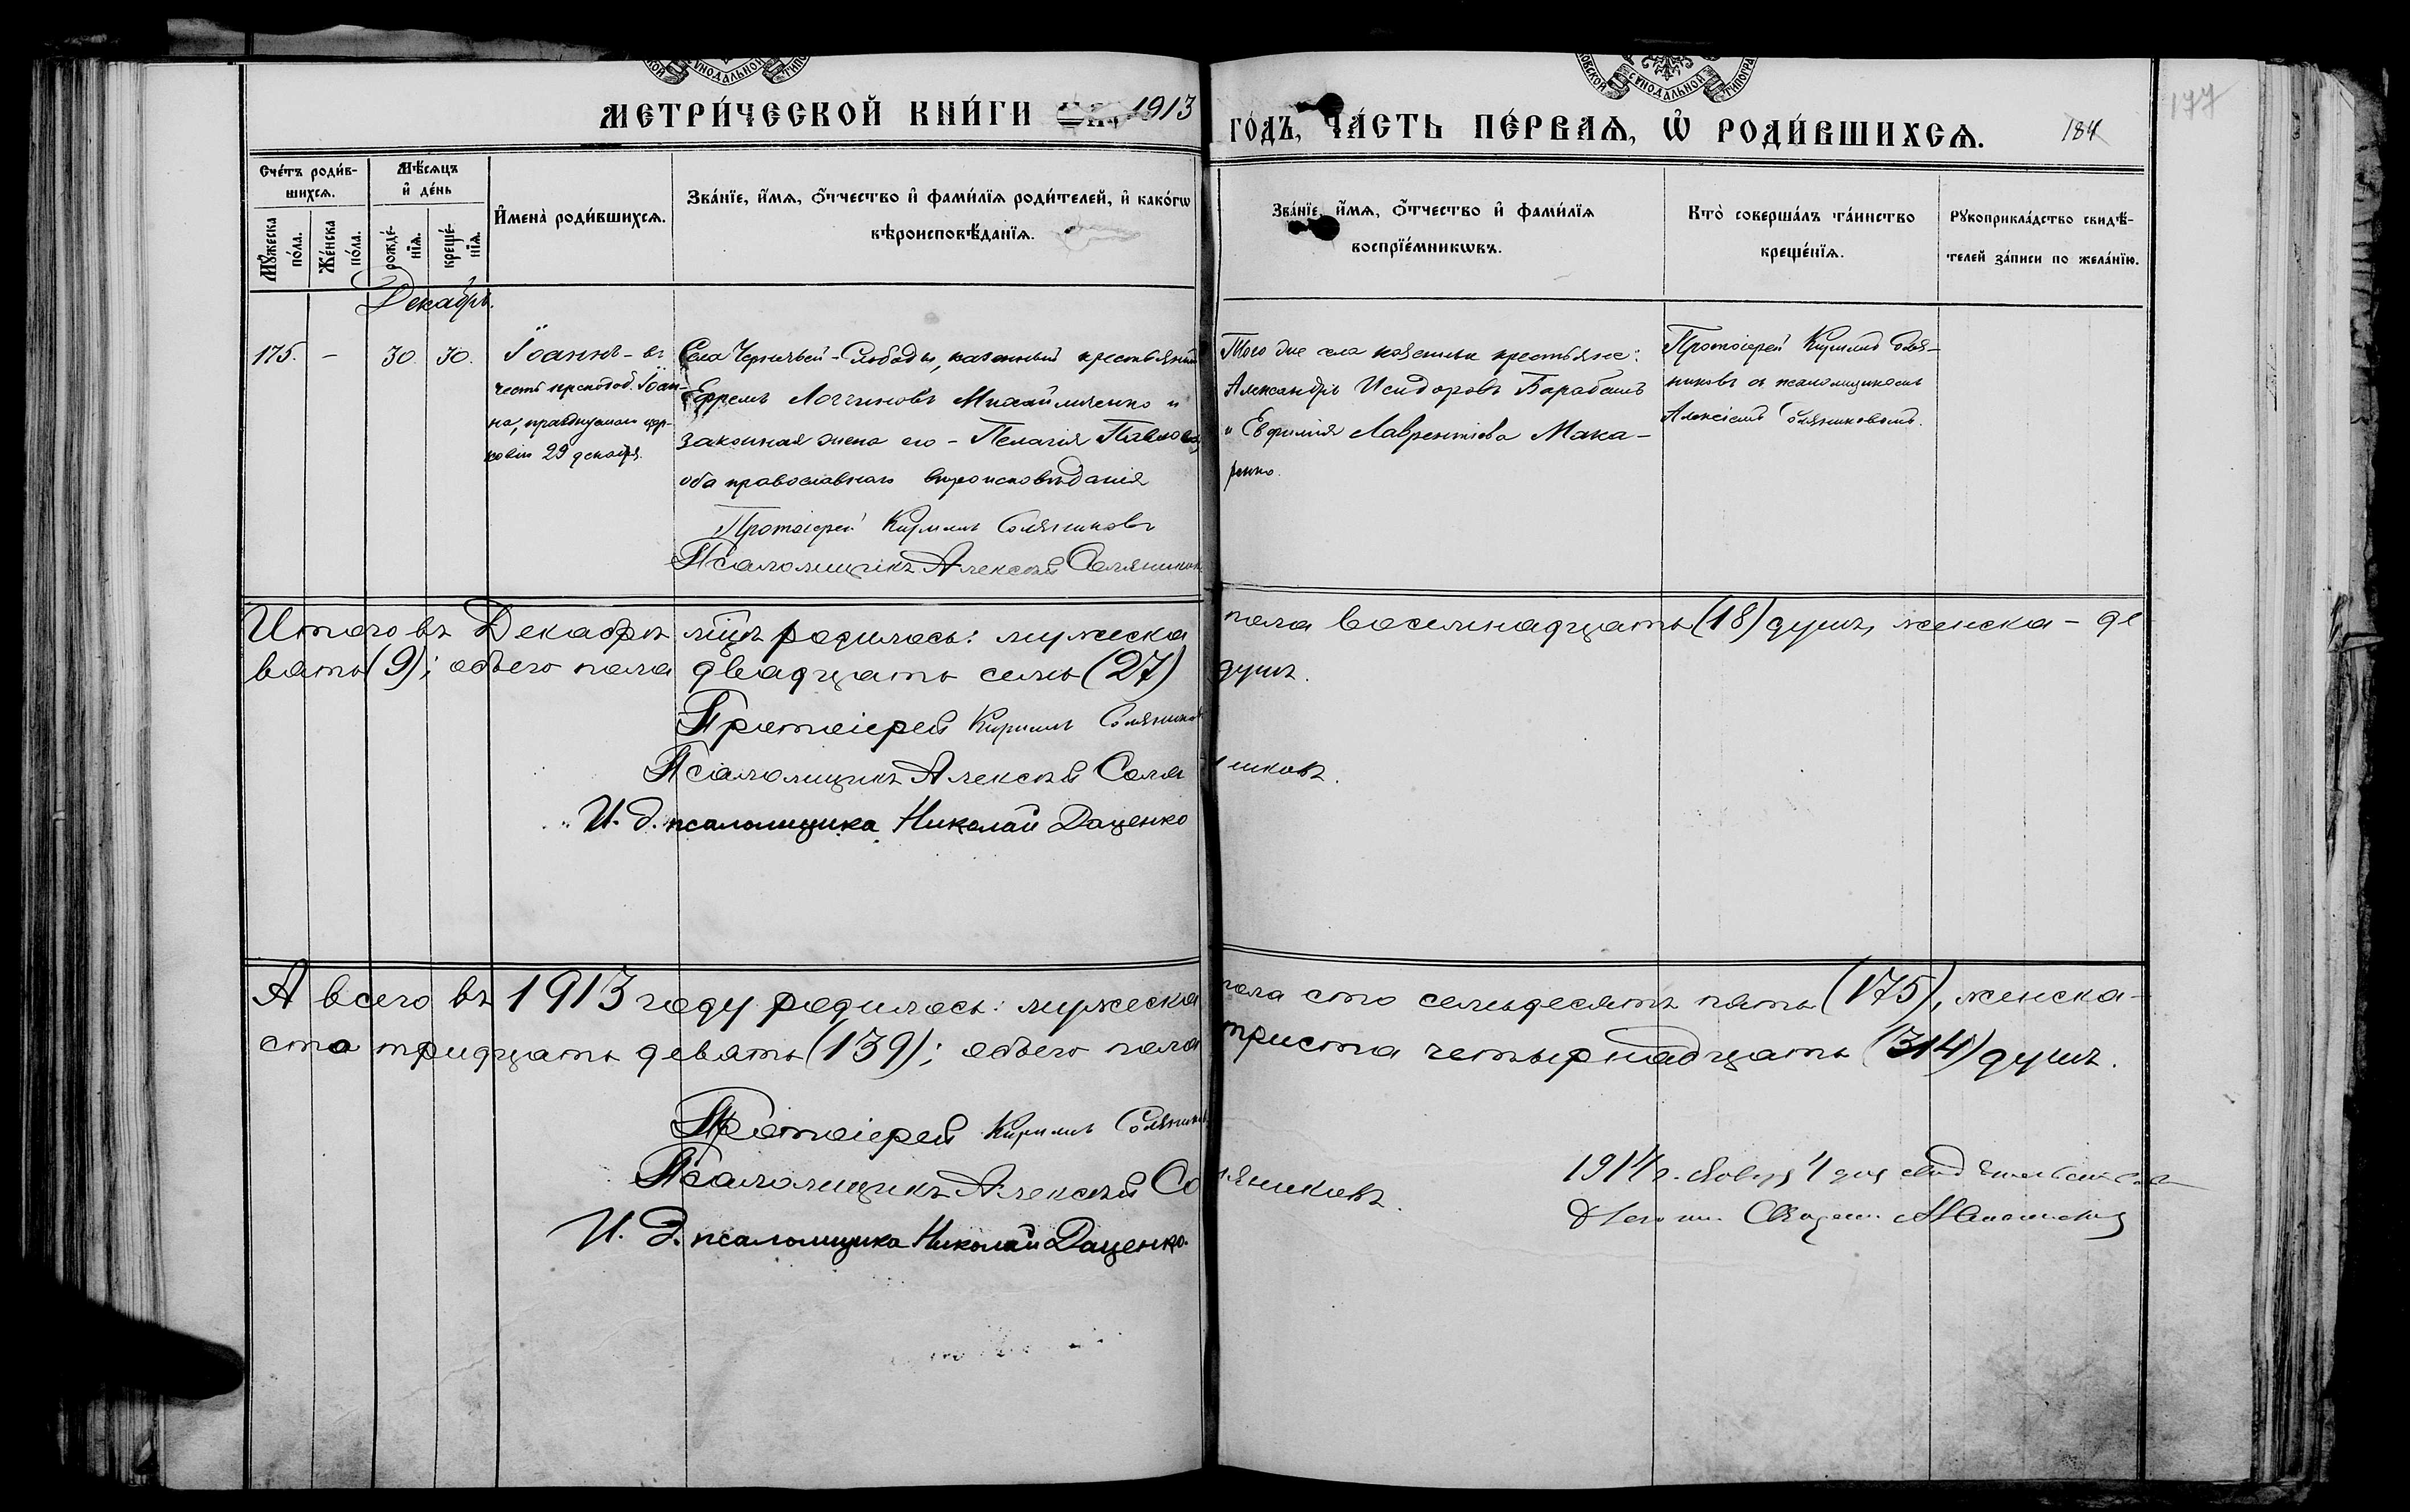 МЕТРИ́ЧЕСКОЙ КНИ́ГИ 1913 ГО́ДЪ, ЧА́СТЬ ПЕ́РВАЯ, Ѿ РОДИ́ВШИХСЯ.
184
177
Сче́тъ роди́в-
шихся.
Мѣ́сяцъ
и҆ де́нь
Мꙋ́жеска
по́ла.
Же́нска
по́ла.
рожде́-
нїя.
креще́-
нїя.
И҆мена̀ роди́вшихся.
Зва́нїе, и҆́мя, ѻ҆́тчество и҆ фами́лїя роди́телей, и҆ како́гѡ
вѣроисповѣ́данїя.
Зва́нїе, и҆́мя, ѻ҆́тчество и҆ фами́лїя
воспрїе́мникѡвъ.
Кто̀ соверша́лъ та́инство
креще́нїя.
Рꙋкоприкла́дство свидѣ́-
телей за́писи по жела́нїю.
Декабрь.
175. – 30. 30.
Іоаннъ – въ
честь преподоб. Іоан-
на, празднуемаго цер-
ковію 29 декабря.
Села Черничьей-Слободы, казенный крестьянинъ
Ефремъ Логгиновъ Михайличенко и
законная жена его – Пелагія Павлова
оба православнаго вѣроисповѣданія
Протоіерей Кириллъ Соляниковъ
Псаломщикъ Алексѣй Соляников
Того же села казенные крестьяне:
Александръ Исидоровъ Барабашъ
и Евфимія Лаврентіева Мака-
ренко.
Протоіерей Кириллъ Соля-
никовъ съ псаломщикомъ
Алексіемъ Соляниковымъ.
Итого въ Декабрѣ мцѣ родилось: мужеска пола восемнадцать (18) душъ, женска – де
вять (9); обоего пола двадцать семь (27) душъ.
Протоіерей Кириллъ Соляников
Псаломщикъ Алексѣй Соляниковъ.
И. д. псаломщика Николай Даценко
А всего въ 1913 году родилось: мужеска пола сто семьдесятъ пять (175), женска –
сто тридцать девять (139); обоего пола триста четырнадцать (314) душъ.
Протоіерей Кириллъ Соляников
Псаломщикъ Алексѣй Соляниковъ.
И. д. псаломщика Николай Даценко.
1914 г. Января 4 дня